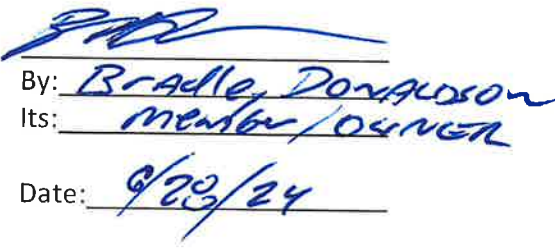 By: Bradley Donaldson
Its: Member / OWNER
Date: 6/20/24